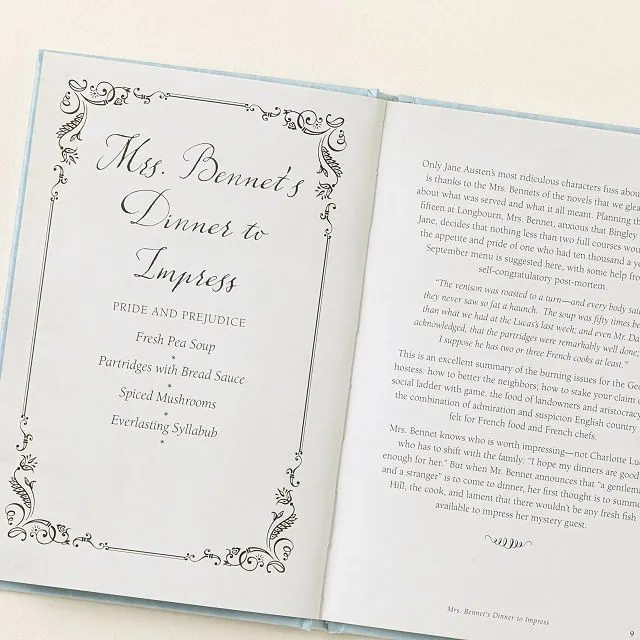 Mrs. Bennet's
Dinner to
Impress
PRIDE AND PREJUDICE
Fresh Pea Soup
*
Partridges with Bread Sauce
*
Spiced Mushrooms
*
Everlasting Syllabub
*
Only Jane Austen's most ridiculous characters fuss about
is thanks to the Mrs. Bennets of the novels that we
about what was served and what it all meant. Planning
fifteen at Longbourn, Mrs. Bennet, anxious that Bingley
Jane, decides that nothing less than two full courses
the appetite and pride of one who had ten thousand a
September menu is suggested here, with some help
self-congratulatory post-mortem.
"The venison was roasted to a turn—and every body
they never saw so fat a haunch. The soup was fifty times
than what we had at the Lucas's last week; and even Mr.
acknowledged, that the partridges were remarkably well done,
I suppose he has two or three French cooks at least."
This is an excellent summary of the burning issues for the
hostess: how to better the neighbors; how to stake your claim
social ladder with game, the food of landowners and
the combination of admiration and suspicion English country
felt for French food and French chefs.
Mrs. Bennet knows who is worth impressing—not Charlotte
who has to shift with the family: "I hope my dinners are good
enough for her." But when Mr. Bennet announces that "a
and a stranger" is to come to dinner, her first thought is to
Hill, the cook, and lament that there wouldn't be any fresh fish
available to impress her mystery guest.
Mrs. Bennet's Dinner to Impress
9